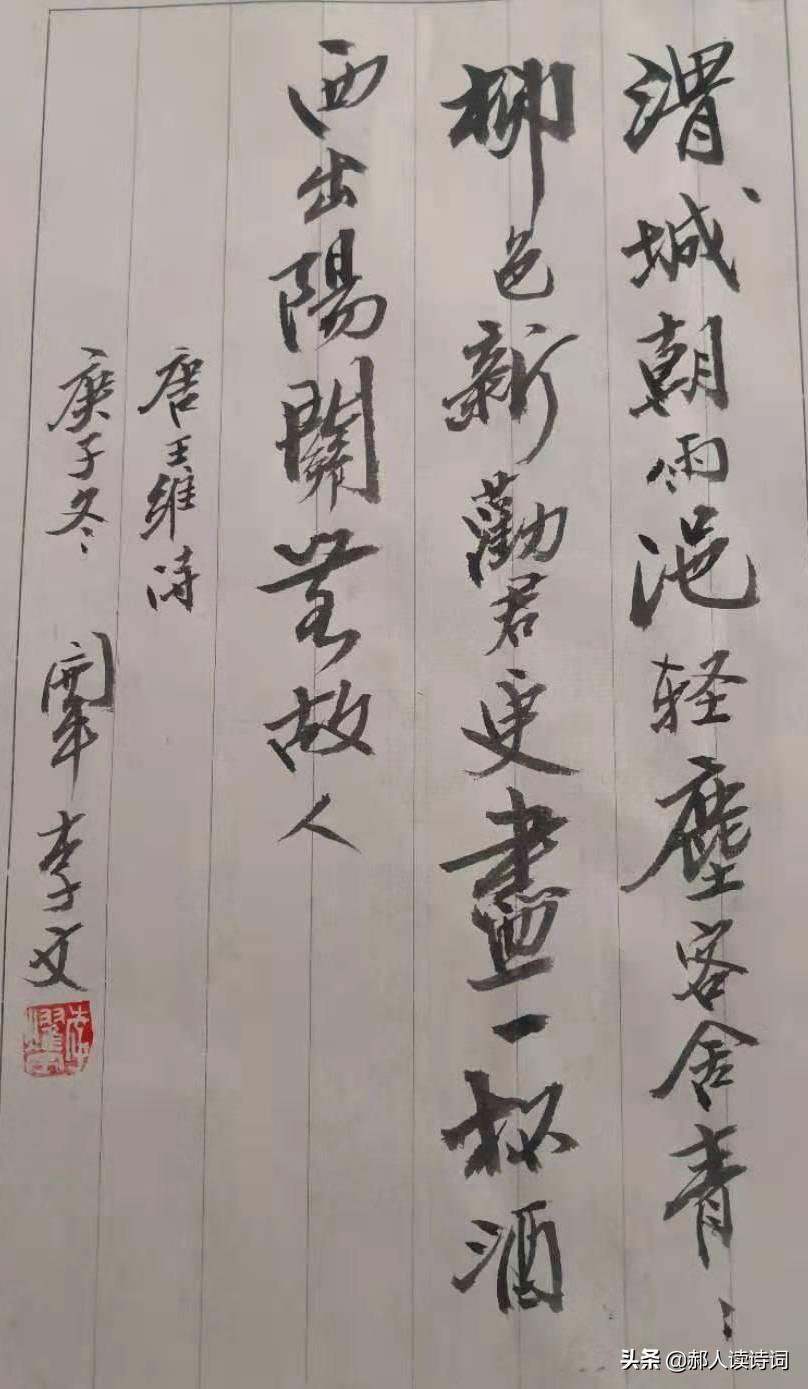 渭城朝雨浥轻塵客舍青：
柳色新勸君更盡一杯酒
西出陽關無故人
唐王维诗
庚子冬 李文
头条 @郝人读诗词